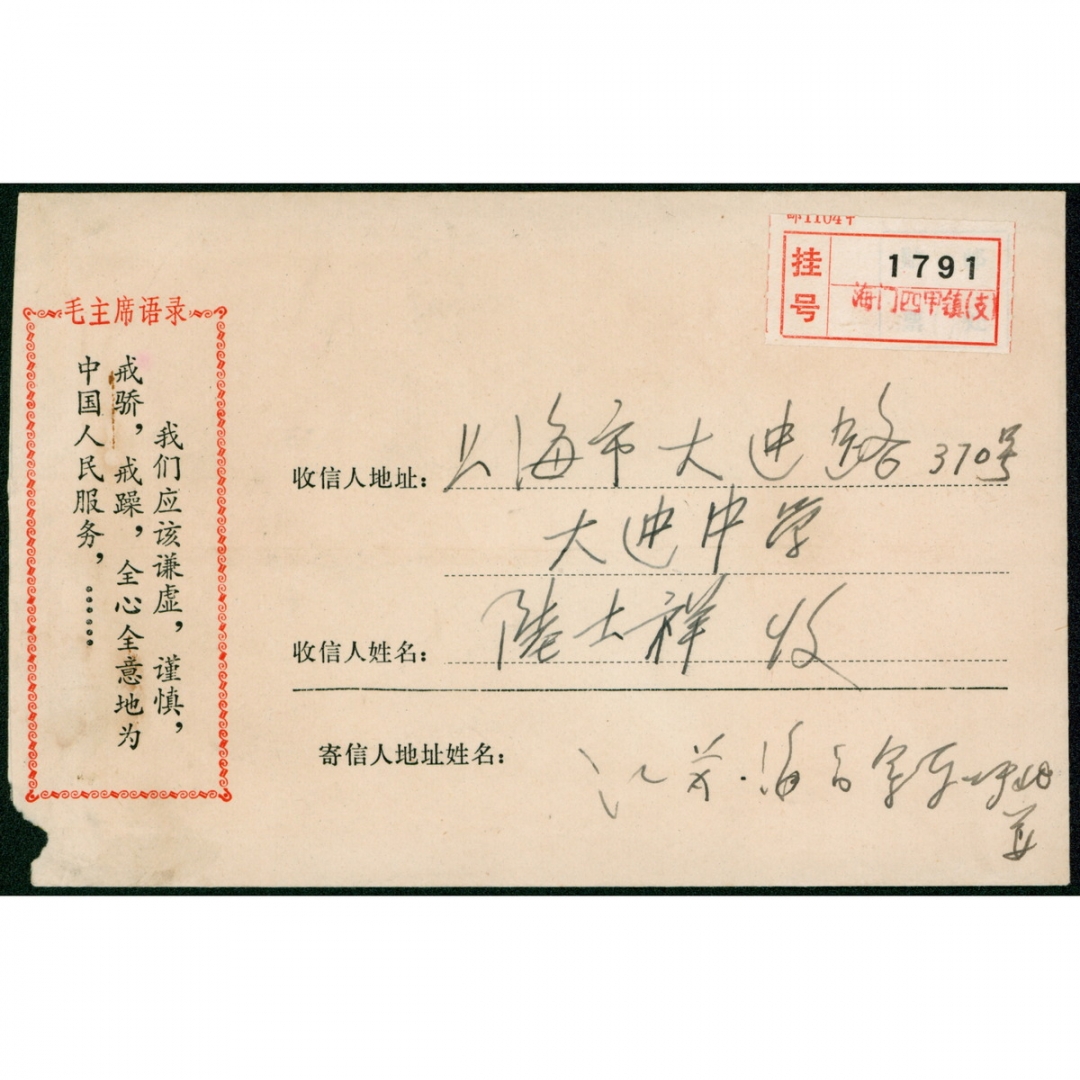 毛主席语录
我们应该谦虚，谨慎，
戒骄，戒躁，全心全意地为
中国人民服务，……
挂号
1791
海门四甲镇(支)
收信人地址：上海市大连路370号
大连中学
收信人姓名：陆士祥 收
寄信人地址姓名：江苏·海门